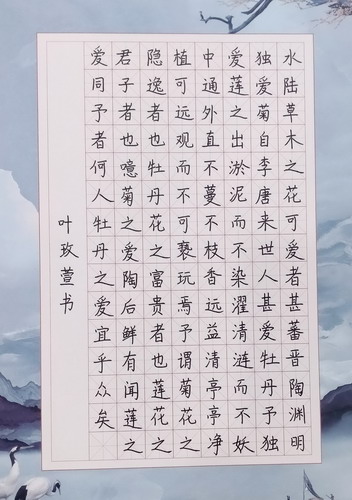 水陆草木之花可爱者甚蕃晋陶渊明
独爱菊自李唐来世人甚爱牡丹予独
爱莲之出淤泥而不染濯清涟而不妖
中通外直不蔓不枝香远益清亭亭净
植可远观而不可亵玩焉予谓菊花之
隐逸者也牡丹花之富贵者也莲花之
君子者也噫菊之爱陶后鲜有闻莲之
爱同予者何人牡丹之爱宜乎众矣
叶玫萱书